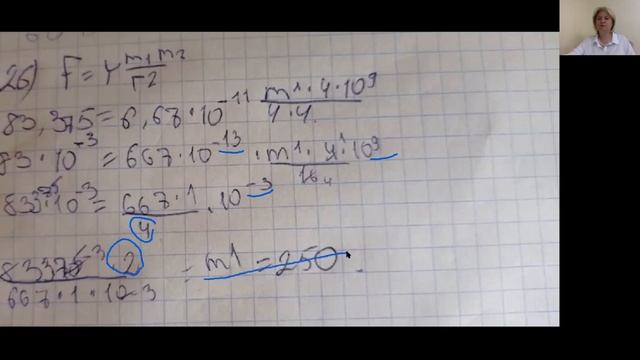 26) F = γ m1 m2 / r2
83,375 = 6,67 · 10^-11 m1 · 4 · 10^9 / 4 · 4
83 · 10^-3 = 667 · 10^-13 · m1 · 4^1 · 10^9 / 16 4
83375 · 10^-3 = 667 · 1 / 4 · 10^-3
83375 -3 · 2 / 667 · 1 · 10 -3 = m1 = 250